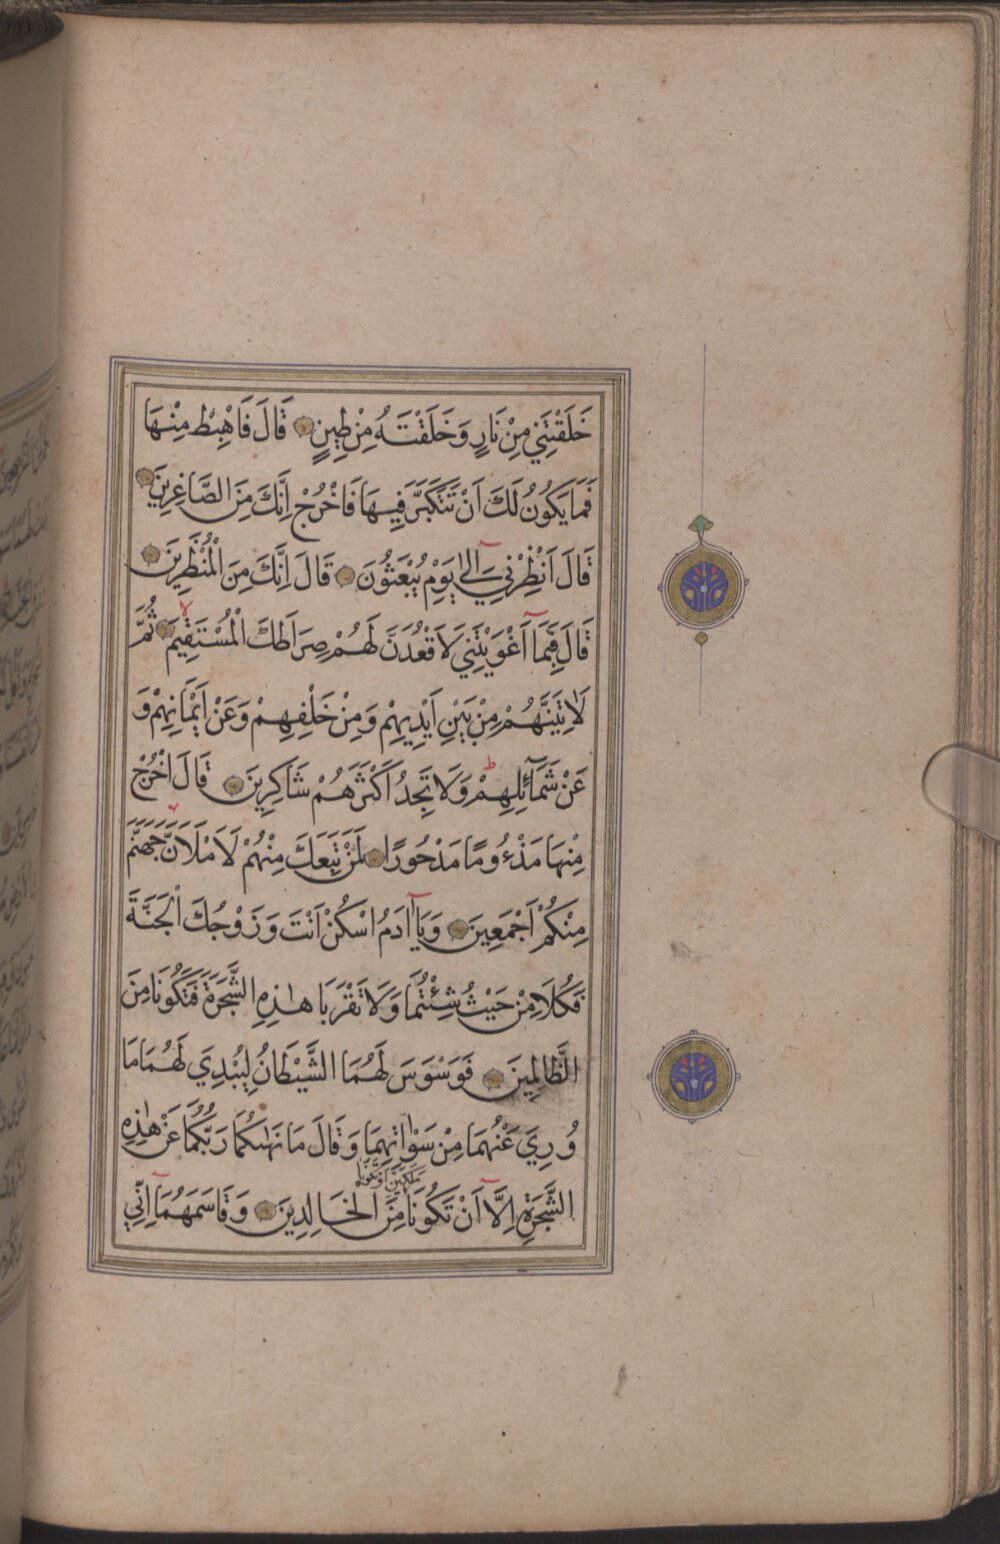 خَلَقْتَنِي مِنْ نَارٍ وَخَلَقْتَهُ مِنْ طِينٍ قَالَ فَاهْبِطْ مِنْهَا
فَمَا يَكُونُ لَكَ اَنْ تَتَكَبَّرَ فِيهَا فَاخْرُجْ اِنَّكَ مِنَ الصَّاغِرِينَ
قَالَ اَنْظِرْنِي اِلٰى يَوْمِ يُبْعَثُونَ قَالَ اِنَّكَ مِنَ الْمُنْظَرِينَ
قَالَ فَبِمَا اَغْوَيْتَنِي لَاَقْعُدَنَّ لَهُمْ صِرَاطَكَ الْمُسْتَقِيمَ ثُمَّ
لَاٰتِيَنَّهُمْ مِنْ بَيْنِ اَيْدِيهِمْ وَمِنْ خَلْفِهِمْ وَعَنْ اَيْمَانِهِمْ وَ
عَنْ شَمَآئِلِهِمْ وَلَا تَجِدُ اَكْثَرَهُمْ شَاكِرِينَ قَالَ اخْرُجْ
مِنْهَا مَذْءُومًا مَدْحُورًا لَمَنْ تَبِعَكَ مِنْهُمْ لَاَمْلَاَنَّ جَهَنَّمَ
مِنْكُمْ اَجْمَعِينَ وَيَآاٰدَمُ اسْكُنْ اَنْتَ وَزَوْجُكَ الْجَنَّةَ
فَكُلَا مِنْ حَيْثُ شِئْتُمَا وَلَا تَقْرَبَا هٰذِهِ الشَّجَرَةَ فَتَكُونَا مِنَ
الظَّالِمِينَ فَوَسْوَسَ لَهُمَا الشَّيْطَانُ لِيُبْدِيَ لَهُمَا مَا
وُرِيَ عَنْهُمَا مِنْ سَوْاٰتِهِمَا وَقَالَ مَا نَهٰىكُمَا رَبُّكُمَا عَنْ هٰذِهِ
مَلَكَيْنِ اَوْ تَكُونَا
الشَّجَرَةِ اِلَّا اَنْ تَكُونَا مِنَ الْخَالِدِينَ وَقَاسَمَهُمَا اِنِّي